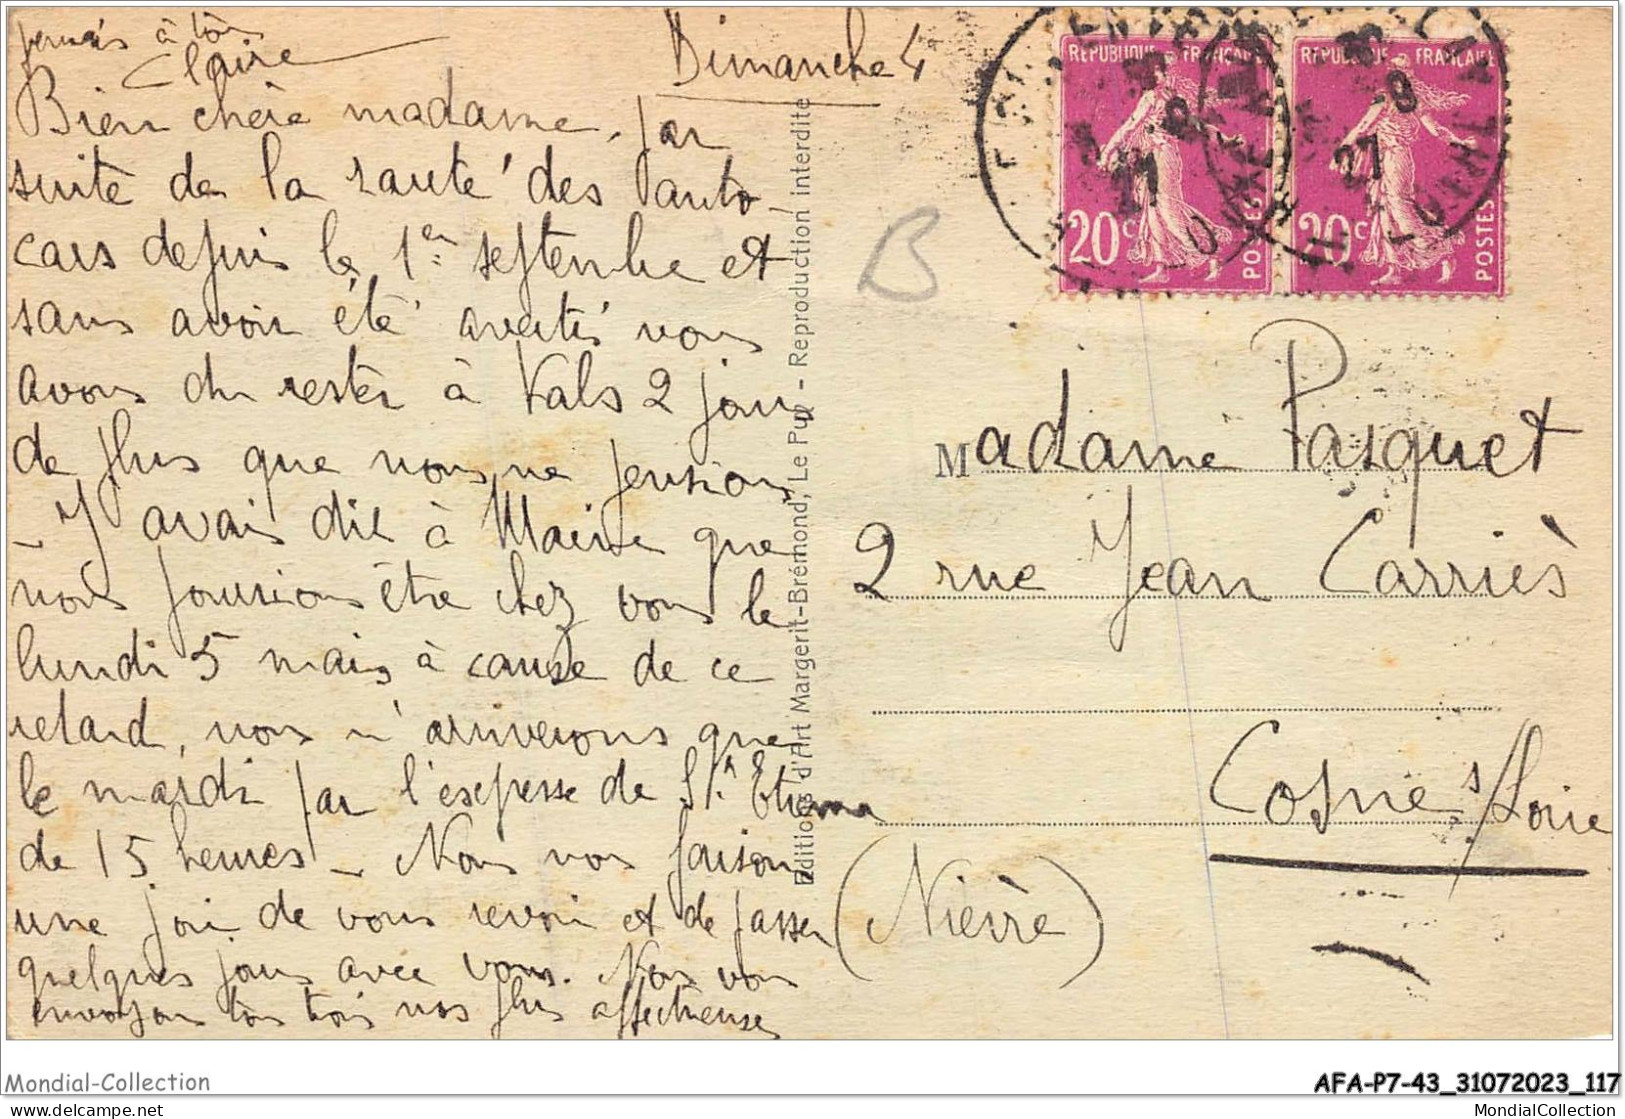 Dimanche 4
Bien chère madame, par
suite de la santé des auto-
cars depuis le 1er septembre et
sans avoir été avertis nous
avons du rester à Vals 2 jours
de plus que nous ne pensions
- J'avais dit à que
nous pourrions être chez vous le
lundi 5 mais à cause de ce
retard, nous n'arriverons que
le mardi par l'expresse de St. Etienne
de 15 heures - Nous nous faisons
une joie de vous revoir et de passer
quelques jours avec vous. Nous vous
envoyons tous trois nos plus affectueuses
pensées à tous
Claire
Editions d'Art Margerit-Brémond, Le Puy - Reproduction interdite
B
REPUBLIQUE FRANÇAISE
20c POSTES
REPUBLIQUE FRANÇAISE
20c POSTES
Madame Pasquet
2 rue Jean Carriès
Cosne s/Loire
(Nièvre)
Mondial-Collection
AFA-P7-43_31072023_117
www.delcampe.net
MondialCollection